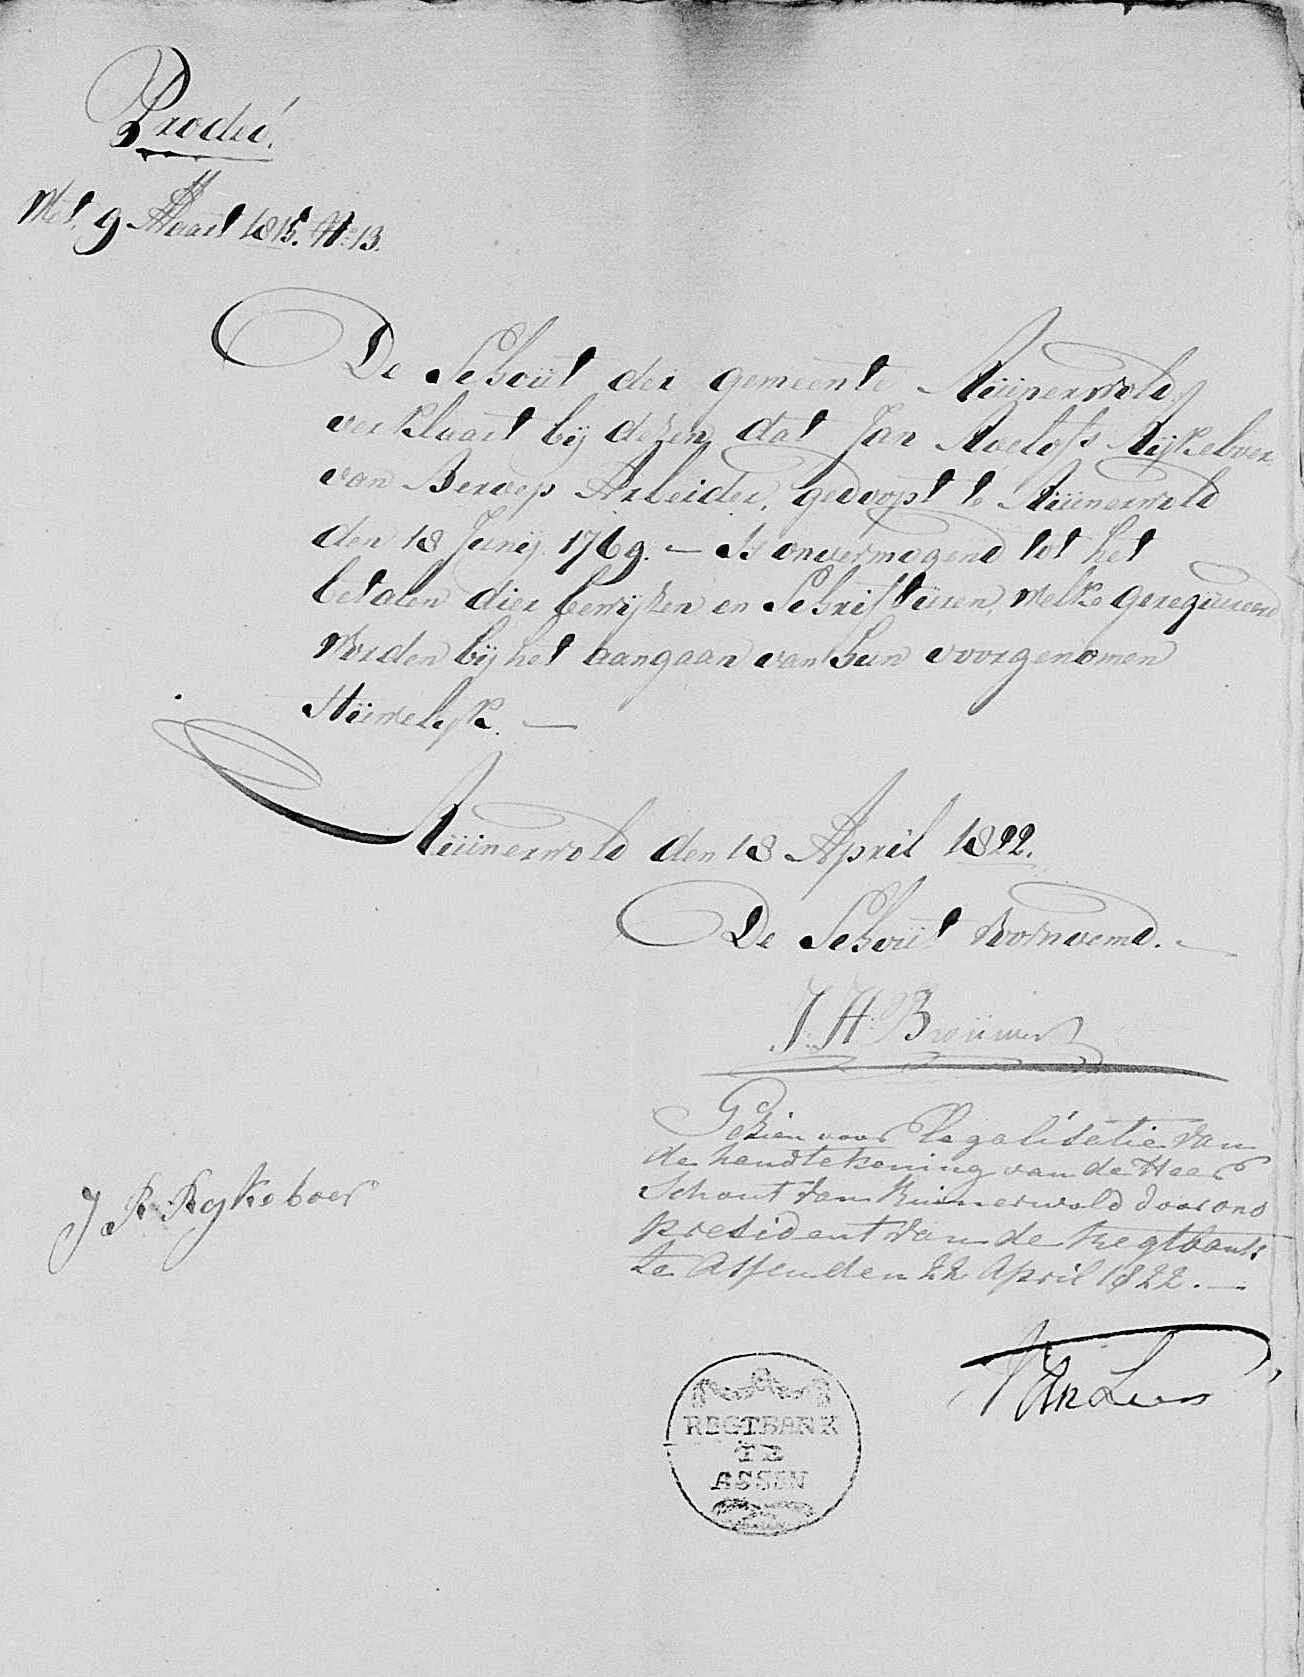 Prodeó.
Wet. 9 Maart 1815. No. 13.
De Schoüt der gemeente Rüinerwold,
verklaart bij dezen dat Jan Roelofs Rijkeboer
van Beroep Arbeider, gedoopt te Rüinerwold
den 18 Junij 1769. — Is onvermogend tot het
betalen dier bewijzen en Schriftüren, welke gerequireerd
Worden bij het aangaan van hun voorgenomen
Hüwelijk. —
Rüinerwold den 18 April 1822.
De Schoüt Voornoemd. —
J. H. Broüwer
Gezien voor Legalisatie van
de handtekening van de Heer
Schout van Ruinerwold door ons
president van de Regtbank
te Assen den 22 April 1822. —
J R Rykeboer
Van Lier
REGTBANK
TE
ASSEN